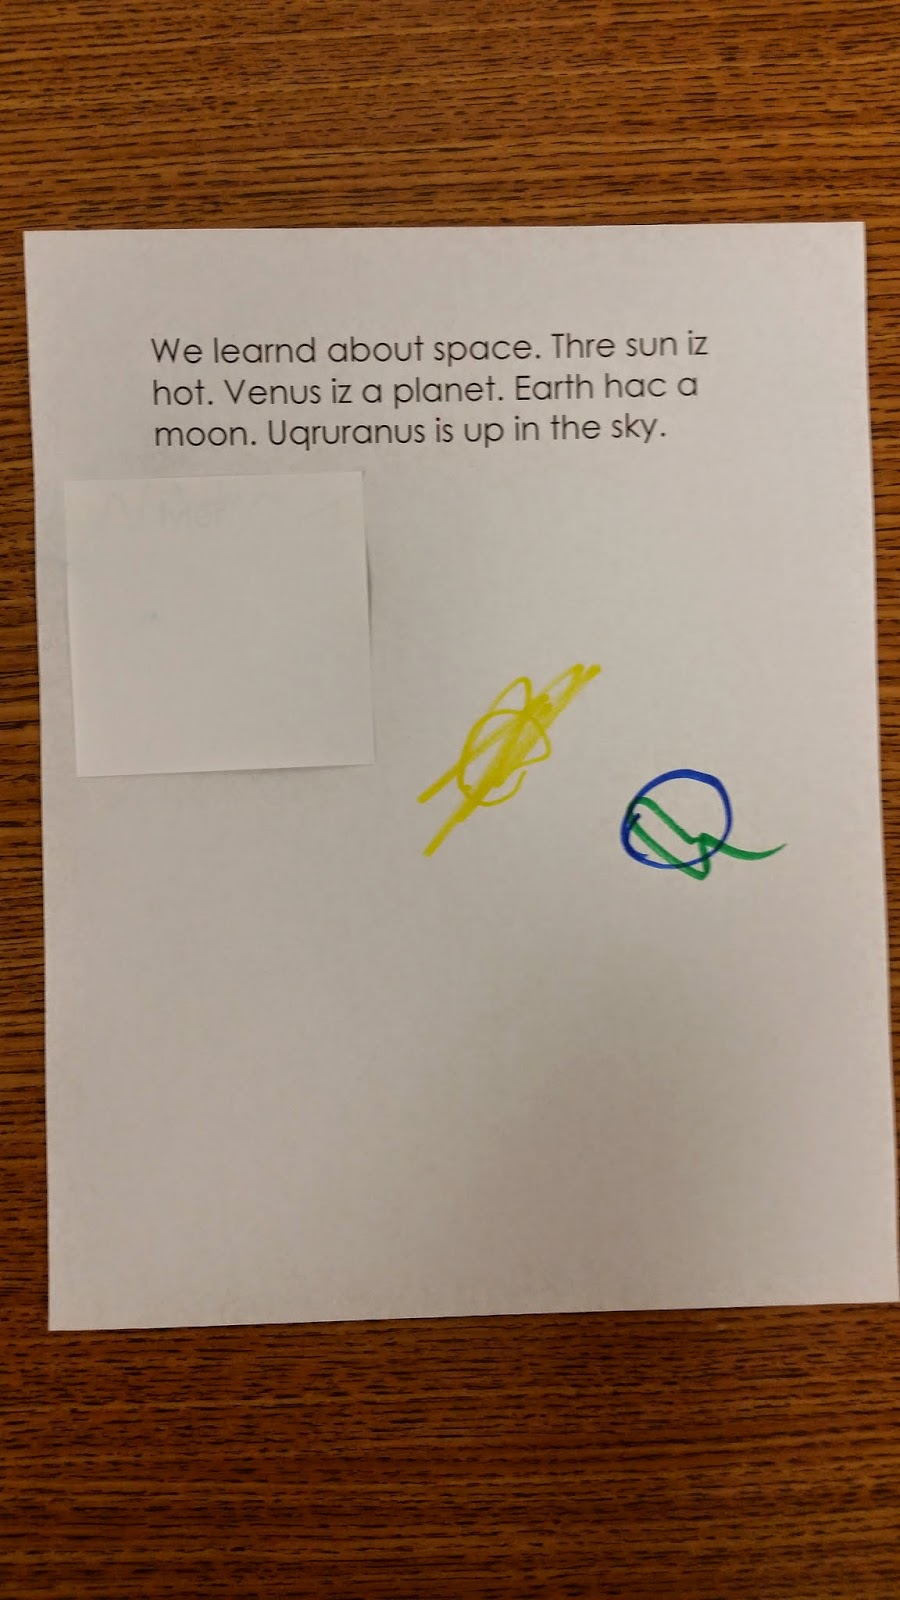 We learnd about space. Thre sun iz
hot. Venus iz a planet. Earth hac a
moon. Uqruranus is up in the sky.